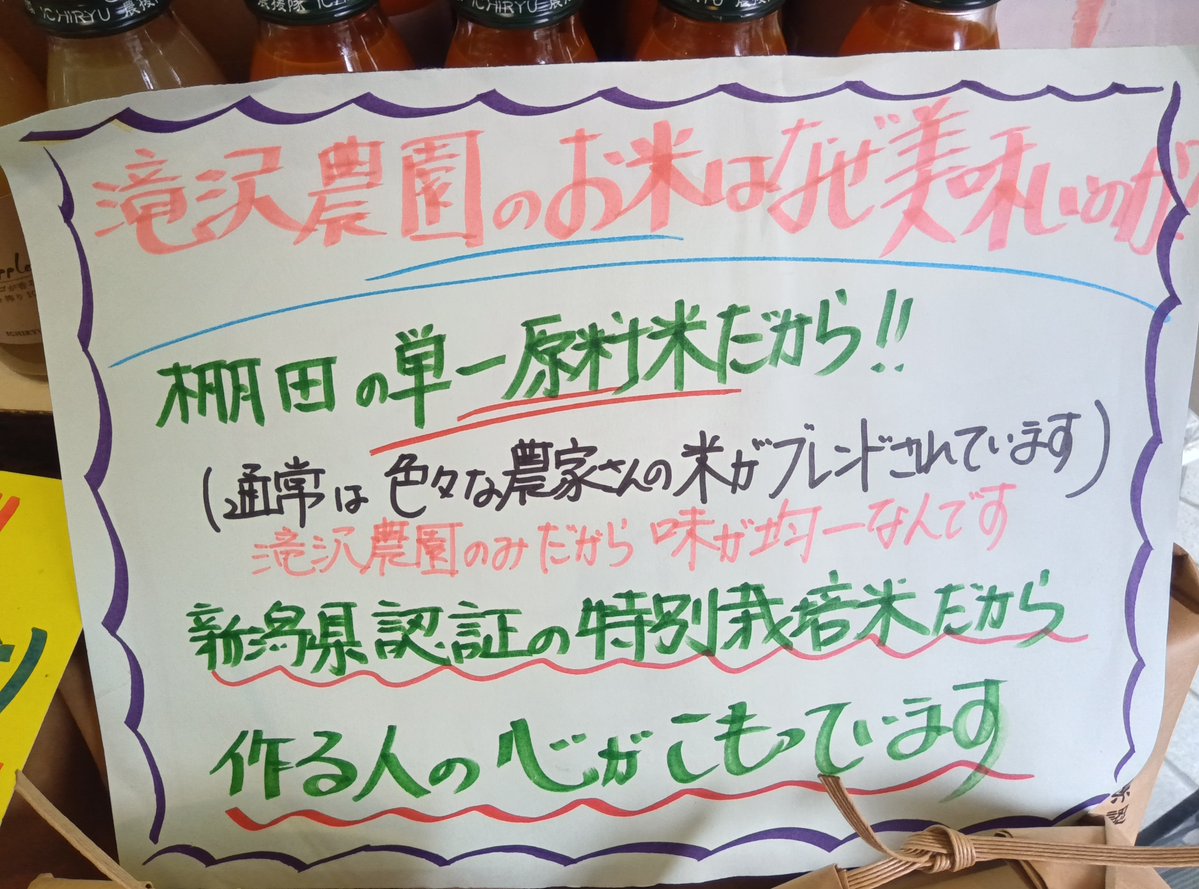 ICHIRYU 農後隊
農後隊 ICHI
ICHIRYU 農後
滝沢農園のお米はなぜ美味しいのか
棚田の単一原料米だから!!
(通常は色々な農家さんの米がブレンドされています)
滝沢農園のみだから味が均一なんです
新潟県認証の特別栽培米だから
作る人の心がこもっています